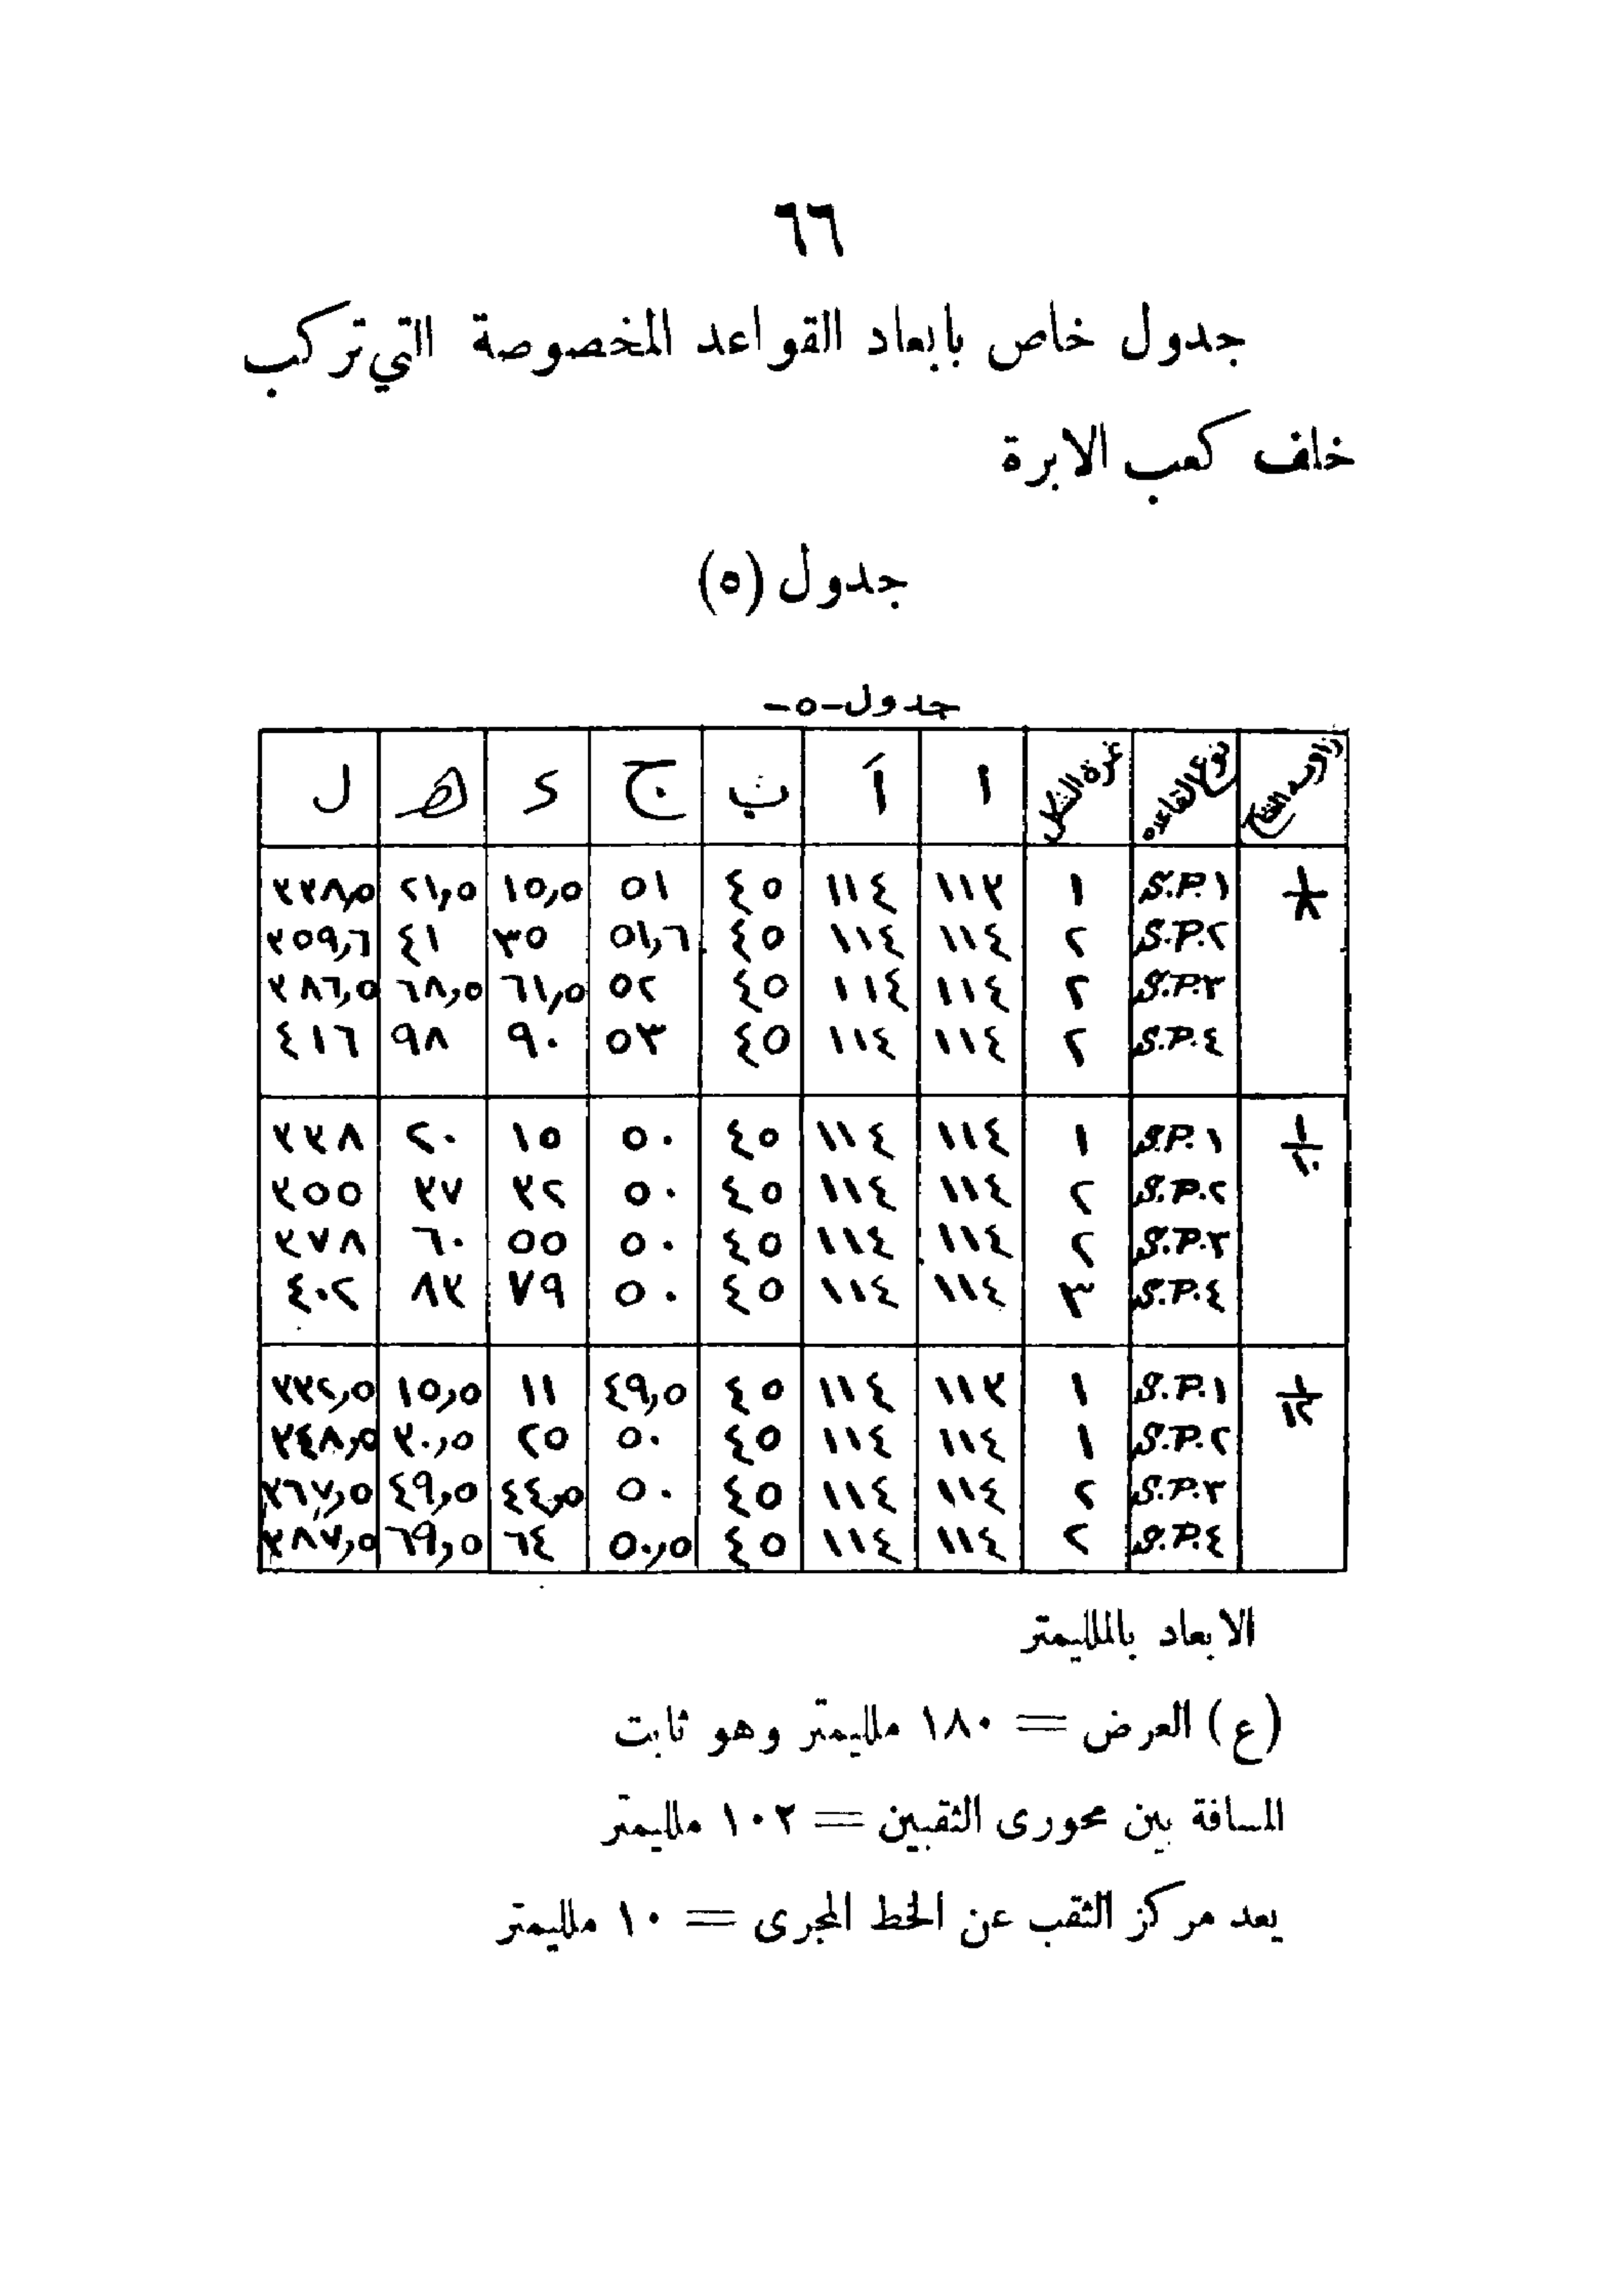 ٦٦
جدول خاص بابعاد القواعد المخصوصة التي تركب
خلف كعب الابرة
جدول (٥)
جدول -٥-
نوع القاعده نمرة الشكل ا اَ ب ج د ه ل
١/٨ S.P.١ ١ ١١٣ ١١٤ ٤٥ ٥١ ١٥,٥ ٢١,٥ ٣٣٨,٥
S.P.٢ ٢ ١١٤ ١١٤ ٤٥ ٥١,٦ ٣٥ ٤١ ٣٥٩,٦
S.P.٣ ٢ ١١٤ ١١٤ ٤٥ ٥٢ ٦١,٥ ٦٨,٥ ٣٨٦,٥
S.P.٤ ٢ ١١٤ ١١٤ ٤٥ ٥٣ ٩٠ ٩٨ ٤١٦
١/١٠ S.P.١ ١ ١١٤ ١١٤ ٤٥ ٥٠ ١٥ ٢٠ ٣٣٨
S.P.٢ ٢ ١١٤ ١١٤ ٤٥ ٥٠ ٣٢ ٣٧ ٣٥٥
S.P.٣ ٢ ١١٤ ١١٤ ٤٥ ٥٠ ٥٥ ٦٠ ٣٧٨
S.P.٤ ٣ ١١٤ ١١٤ ٤٥ ٥٠ ٧٩ ٨٣ ٤٠٢
١/١٢ S.P.١ ١ ١١٣ ١١٤ ٤٥ ٤٩,٥ ١١ ١٥,٥ ٣٣٢,٥
S.P.٢ ١ ١١٤ ١١٤ ٤٥ ٥٠ ٢٥ ٣٠,٥ ٣٤٨,٥
S.P.٣ ٢ ١١٤ ١١٤ ٤٥ ٥٠ ٤٤,٥ ٤٩,٥ ٣٦٧,٥
S.P.٤ ٢ ١١٤ ١١٤ ٤٥ ٥٠,٥ ٦٤ ٦٩,٥ ٣٨٧,٥
الابعاد بالملليمتر
(ع) العرض = ١٨٠ ملليمتر وهو ثابت
المسافة بين محورى الثقبين = ١٠٢ ملليمتر
بعد مركز الثقب عن الخط المجرى = ١٠ ملليمتر